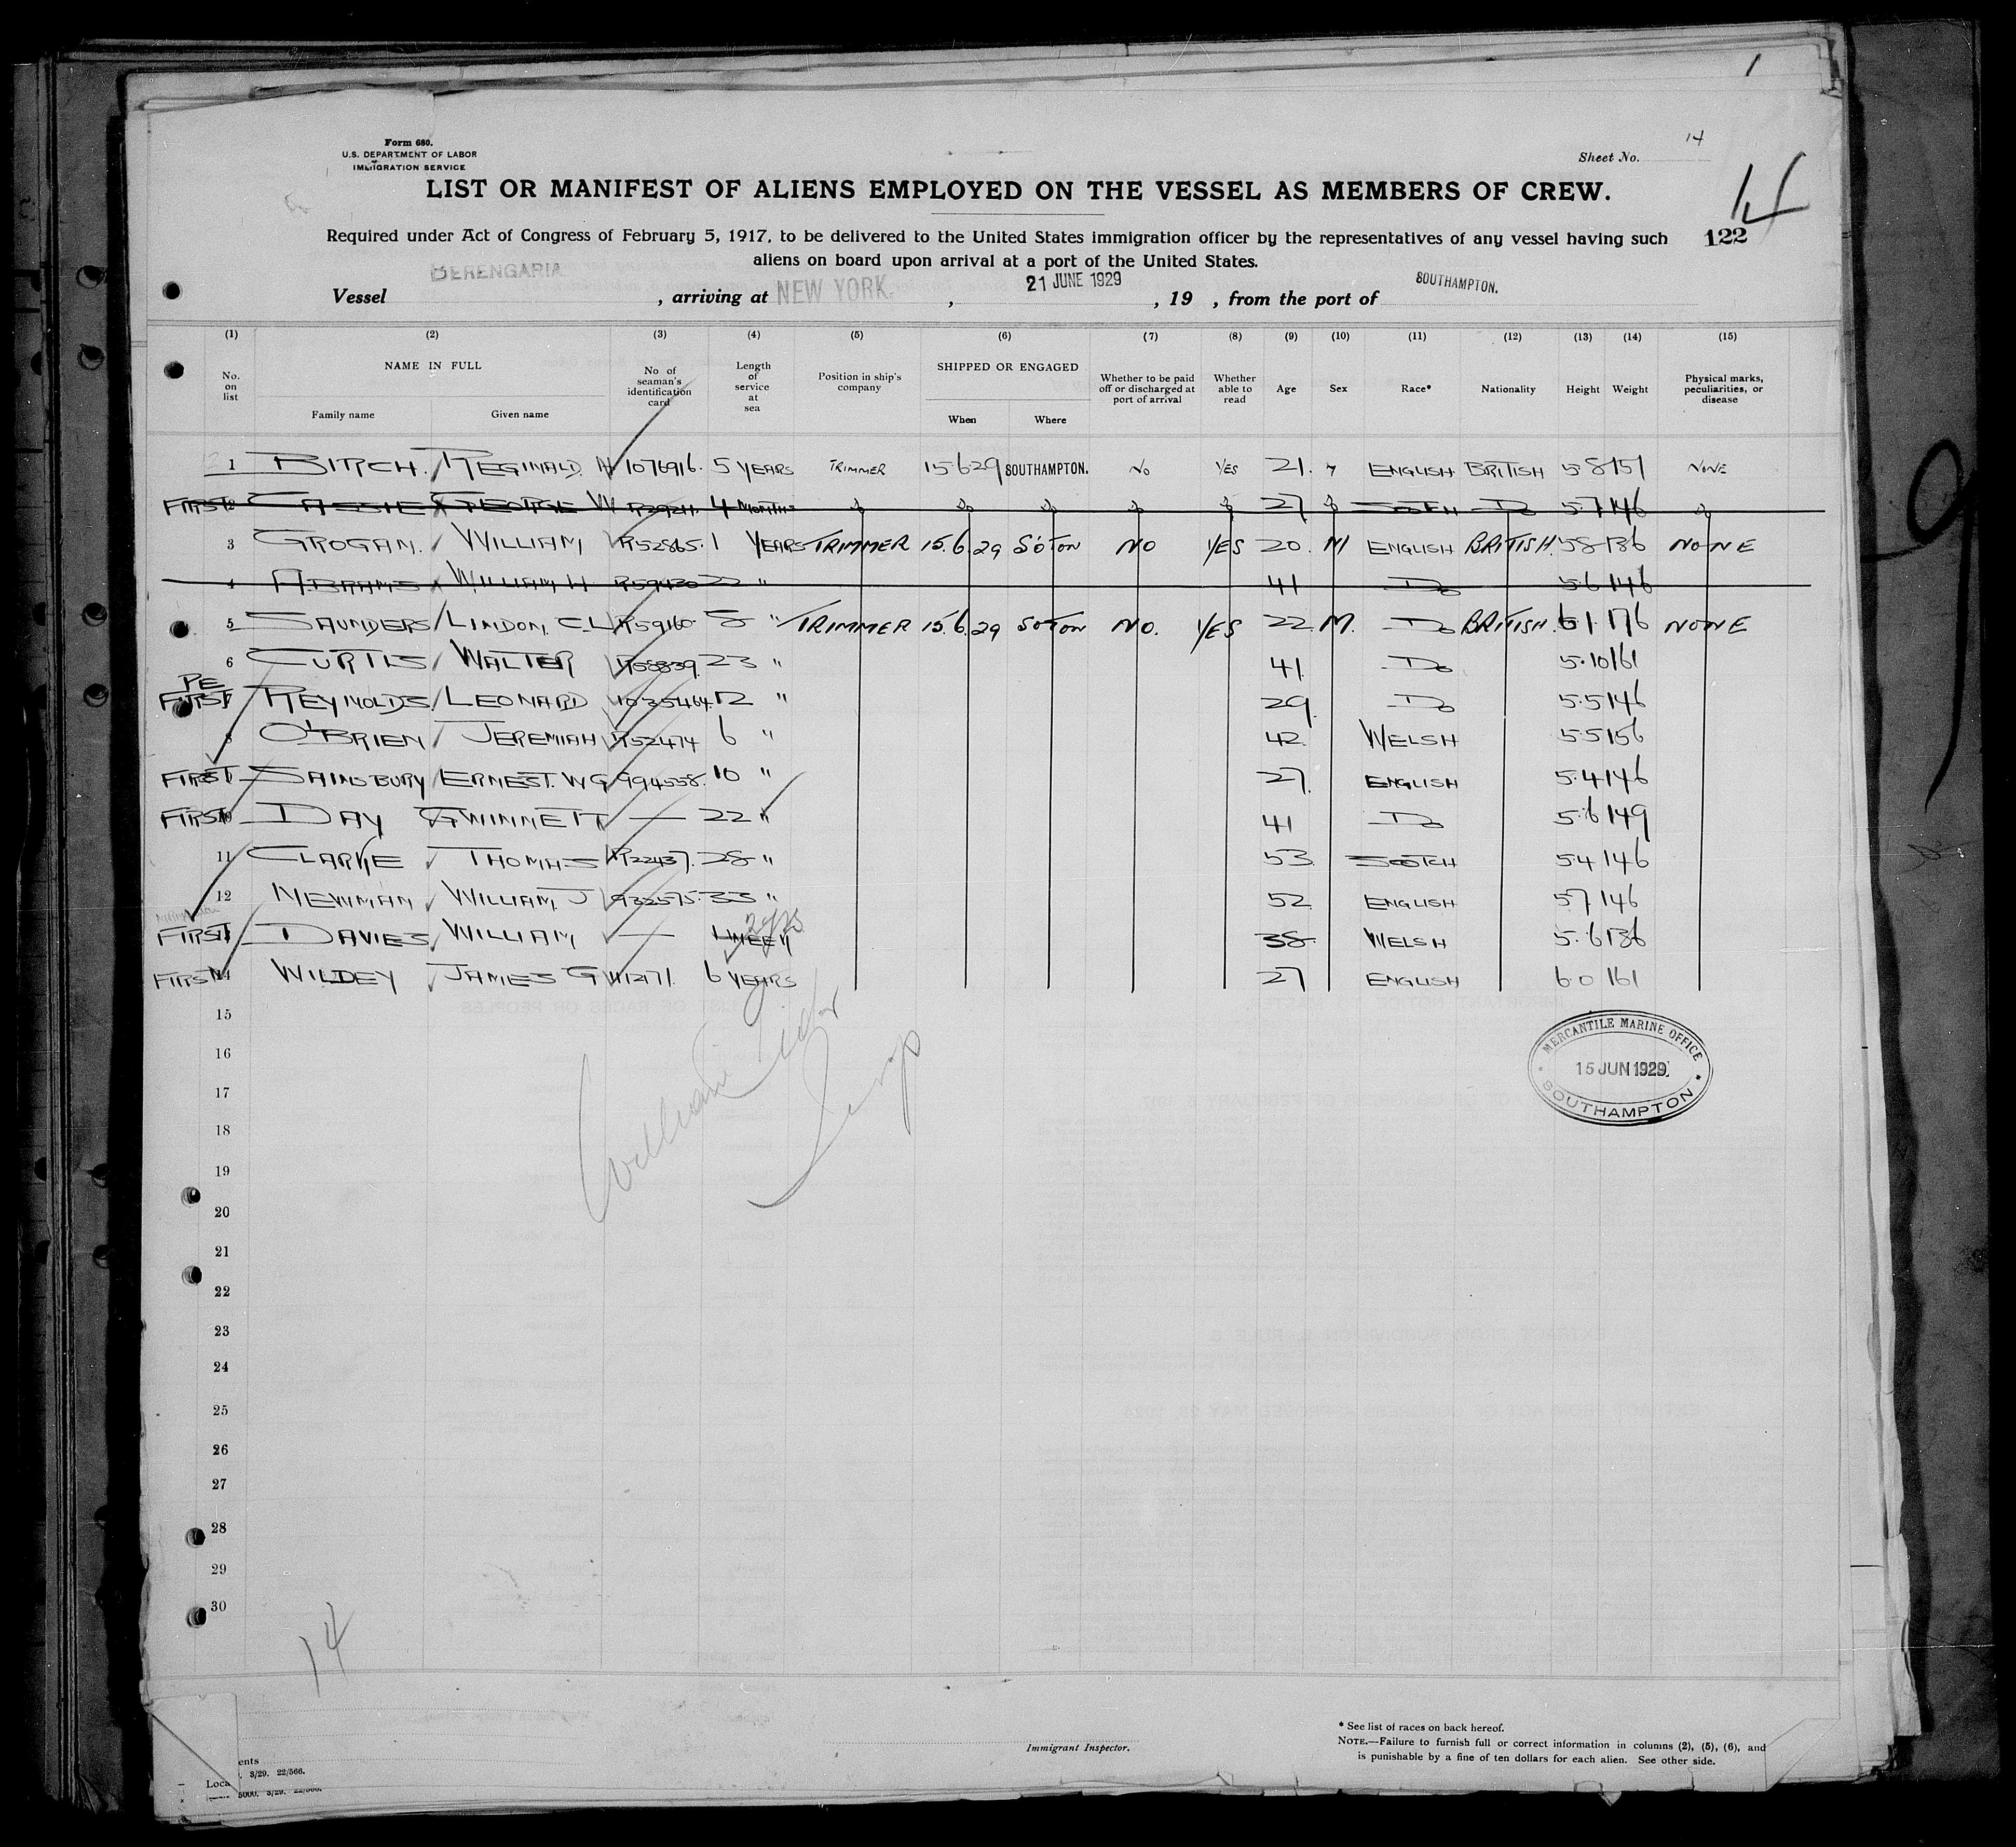 1
Form 680.
U.S. DEPARTMENT OF LABOR
IMMIGRATION SERVICE
Sheet No. 14
14
LIST OR MANIFEST OF ALIENS EMPLOYED ON THE VESSEL AS MEMBERS OF CREW.
122
Required under Act of Congress of February 5, 1917, to be delivered to the United States immigration officer by the representatives of any vessel having such
aliens on board upon arrival at a port of the United States.
Vessel BERENGARIA, arriving at NEW YORK, 21 JUNE 1929, 19 , from the port of SOUTHAMPTON.
(1) (2) (3) (4) (5) (6) (7) (8) (9) (10) (11) (12) (13) (14) (15)
No. on list NAME IN FULL Family name Given name No of seaman's identification card Length of service at sea Position in ship's company SHIPPED OR ENGAGED When Where Whether to be paid off or discharged at port of arrival Whether able to read Age Sex Race* Nationality Height Weight Physical marks, peculiarities, or disease
1 BIRCH. REGINALD. H 1076916. 5 YEARS TRIMMER 15 6 29 SOUTHAMPTON. NO YES 21. ENGLISH BRITISH 5.8 151 NONE
FIRST 2 CASSIE GEORGE W 4 MONTHS Do Do Do Do Do 27 Do SCOTCH Do 5.7 146 Do
3 GROGAN. WILLIAM R52865. 1 YEARS TRIMMER 15.6.29 SOTON NO YES 20. M ENGLISH BRITISH. 5 8 136 NONE
4 ABRAMS WILLIAM H R59430 22 " 41 Do 5.6 146
5 SAUNDERS LINDON. C.L R59160. 8 " TRIMMER 15.6.29 SOTON NO. YES 22 M. Do BRITISH. 6 1. 176 NONE
6 CURTIS WALTER R58839. 23 " 41. Do 5.10 161
PE
FIRST 7 REYNOLDS. LEONARD 1035464. 12 " 29. Do 5.5 146
8 O'BRIEN JEREMIAH R52474 6 " 42. WELSH 5.5 156
FIRST SAINSBURY ERNEST. W G 994538. 10 " 27. ENGLISH 5.4 146
FIRST 10 DAY GWINNETT — 22 " 41 Do 5.6 149
11 CLARKE THOMAS R22437. 28 " 53. SCOTCH 5.4 146
12 NEWMAN WILLIAM. J 932575. 33 " 52. ENGLISH 5 7 146
FIRST DAVIES WILLIAM — 1 WEEK 38. WELSH 5.6 136
FIRST 14 WILDEY JAMES G 6 YEARS 27 ENGLISH 6 0 161
15
16
17
18
19
20
21
22
23
24
25
26
27
28
29
30
MERCANTILE MARINE OFFICE
15 JUN 1929
SOUTHAMPTON
William
14
Immigrant Inspector.
* See list of races on back hereof.
NOTE.—Failure to furnish full or correct information in columns (2), (5), (6), and
is punishable by a fine of ten dollars for each alien. See other side.
ents
3/29. 22/566.
Loca
5000. 3/29. 22/566.